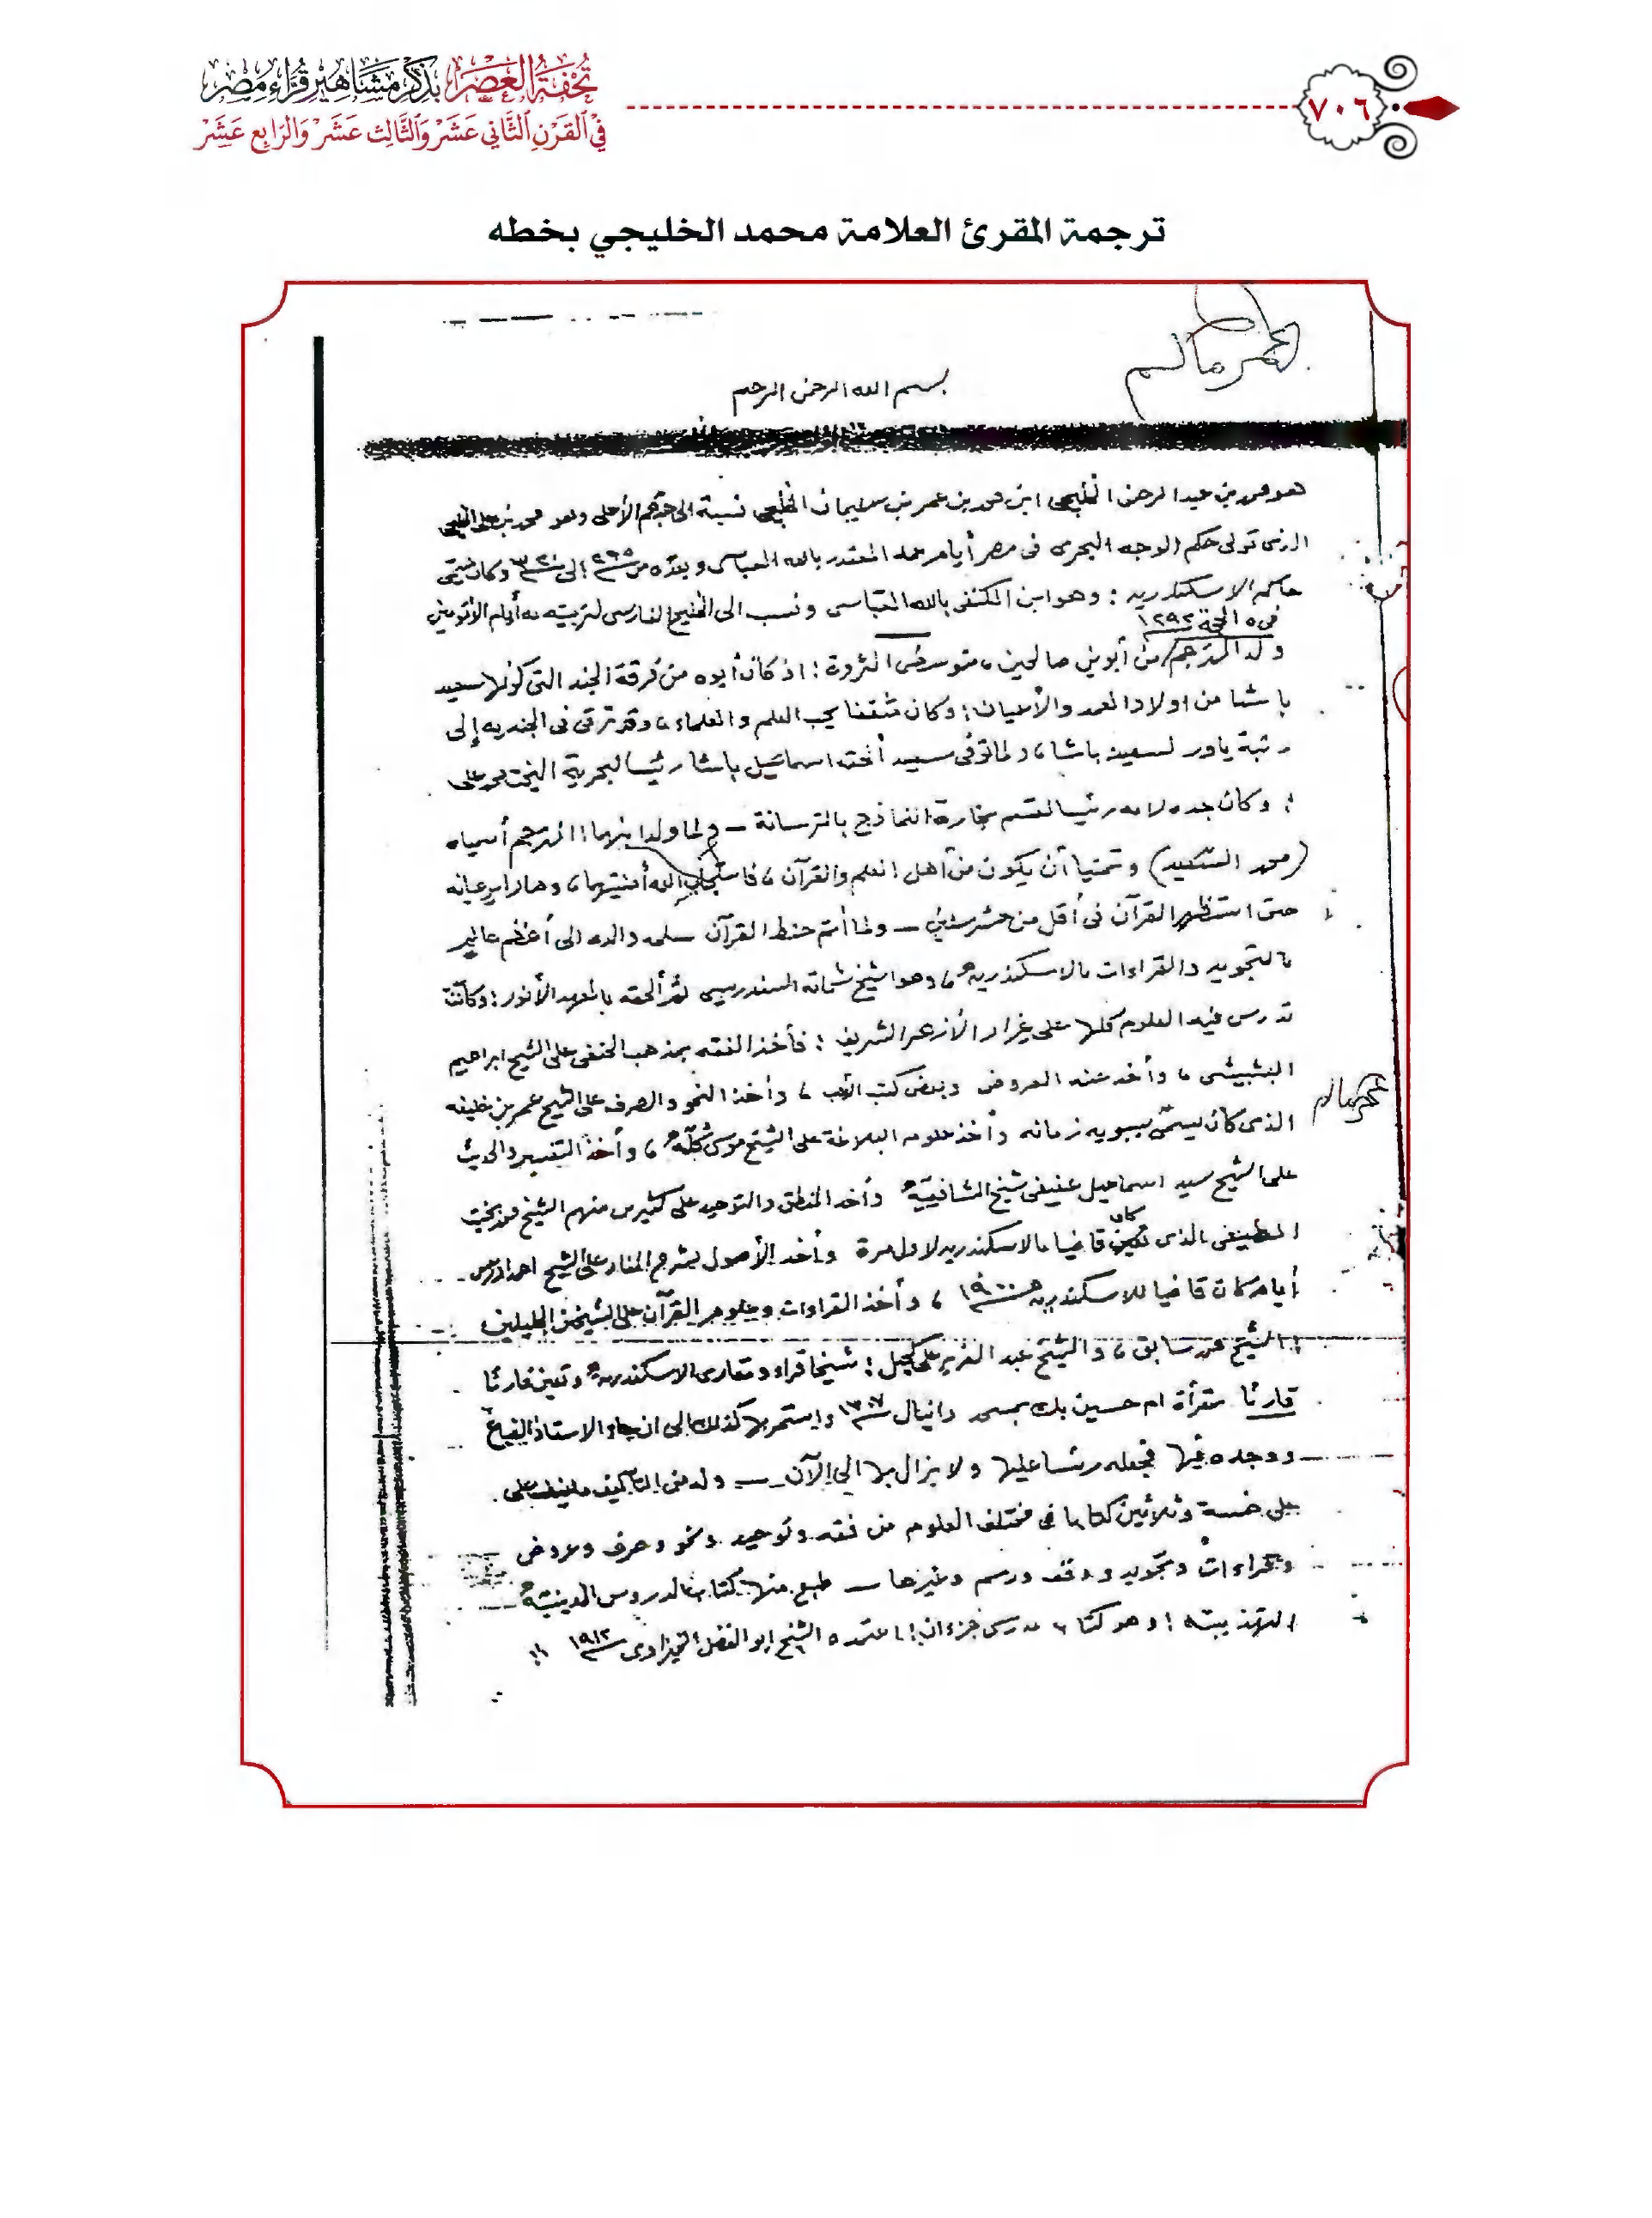 تُحْفَةُ الْعَصْرِ بِذِكْرِ مَشَاهِيرِ قُرَّاءِ مِصْرَ
فِي الْقَرْنِ الثَّانِي عَشَرَ وَالثَّالِثَ عَشَرَ وَالرَّابِعَ عَشَرَ
٧٠٦
ترجمة المقرئ العلامة محمد الخليجي بخطه
بسم الله الرحمن الرحيم
هو محمد بن عبد الرحمن الخليجى ابن محمد بن عمر بن سليمان الخليجى نسبة الى جدهم الأعلى وهو محمد بن على الخليجى
الذى تولى حكم الوجه البحرى فى مصر أيام عهد المقتدر بالله العباسى وبعده من الى وكان
حاكم الاسكندرية : وهو ابن المكتفى بالله العباسى ونسب الى الخليج الفارسى لتربيته به أيام
فى ٥ الحجة ١٢٩٢
ولد المترجم من أبوين صالحين، متوسطى الثروة : اذ كان أبوه من فرقة الجند التى كونها سعيد
باشا من اولاد العمد والأعيان : وكان شغفا بحب العلم والعلماء، وقد ترقى فى الجنديه إلى
رتبة ياور لسعيد باشا، ولما توفى سعيد اسماعيل باشا البحرية محمد على
: وكان جده لامه رئيسا لقسم نجارة النماذج بالترسانة – ولما ولد ابنهما المترجم أسمياه
(محمد السعيد) وتمنيا أن يكون من أهل العلم والقرآن، فاستجاب الله أمنيتهما، وصارا يرعيانه
حتى استظهر القرآن فى أقل من عشر سنين – ولما أتم حفظ القرآن سلمه والده الى أعظم عالم
بالتجويد والقراءات بالاسكندرية، وهو الشيخ شحاته السندريسى ثم ألحقه بالمعهد الأنور : وكانت
تدرس فيه العلوم كلها على غرار الأزهر الشريف : فأخذ الفقه بمذهب الحنفى على الشيخ ابراهيم
البشبيشى، وأخذ عنه العروض وبعض كتب الأدب، وأخذ النحو والصرف على الشيخ عمر بن خليفه
الذى كان يسمى سيبويه زمانه وأخذ علوم البلاغة على الشيخ موسى، وأخذ التفسير والحديث
على الشيخ سيد اسماعيل عفيفى شيخ الشافعية وأخذ المنطق والتوحيد على كثير من منهم الشيخ محمد بخيت
المطيعى الذى كان قاضيا بالاسكندريه لاول مرة وأخذ الأصول بشرح المنار على الشيخ احمد ادريس
أيام كان قاضيا للاسكندريه سنة ١٩٠٠، وأخذ القراءات وعلوم القرآن على الشيخين الجليلين
الشيخ محمد سابق، والشيخ عبد العزيز على كحيل : شيخا قراء ومقارى الاسكندرية وتعين قارئا
قارئا بمقرأة ام حسين بك بمسجد دانيال ١٣٠٧ واستمر بها كذلك الى ان جاء الاستاذ الضباع
ووجده فيها فجعله رئيسا عليها ولا يزال بها الى الآن – وله من التآليف ما ينيف على
على خمسة وثلاثين كتابا فى مختلف العلوم من فقه وتوحيد ونحو وصرف وعروض
وقراءات وتجويد ووقف ورسم وغيرها – طبع منها كتاب الدروس الدينية
التهذيبية : وهو كتاب مدرسى جزءان : اعتمده الشيخ ابو الفضل الجيزاوى سنة ١٩١٢